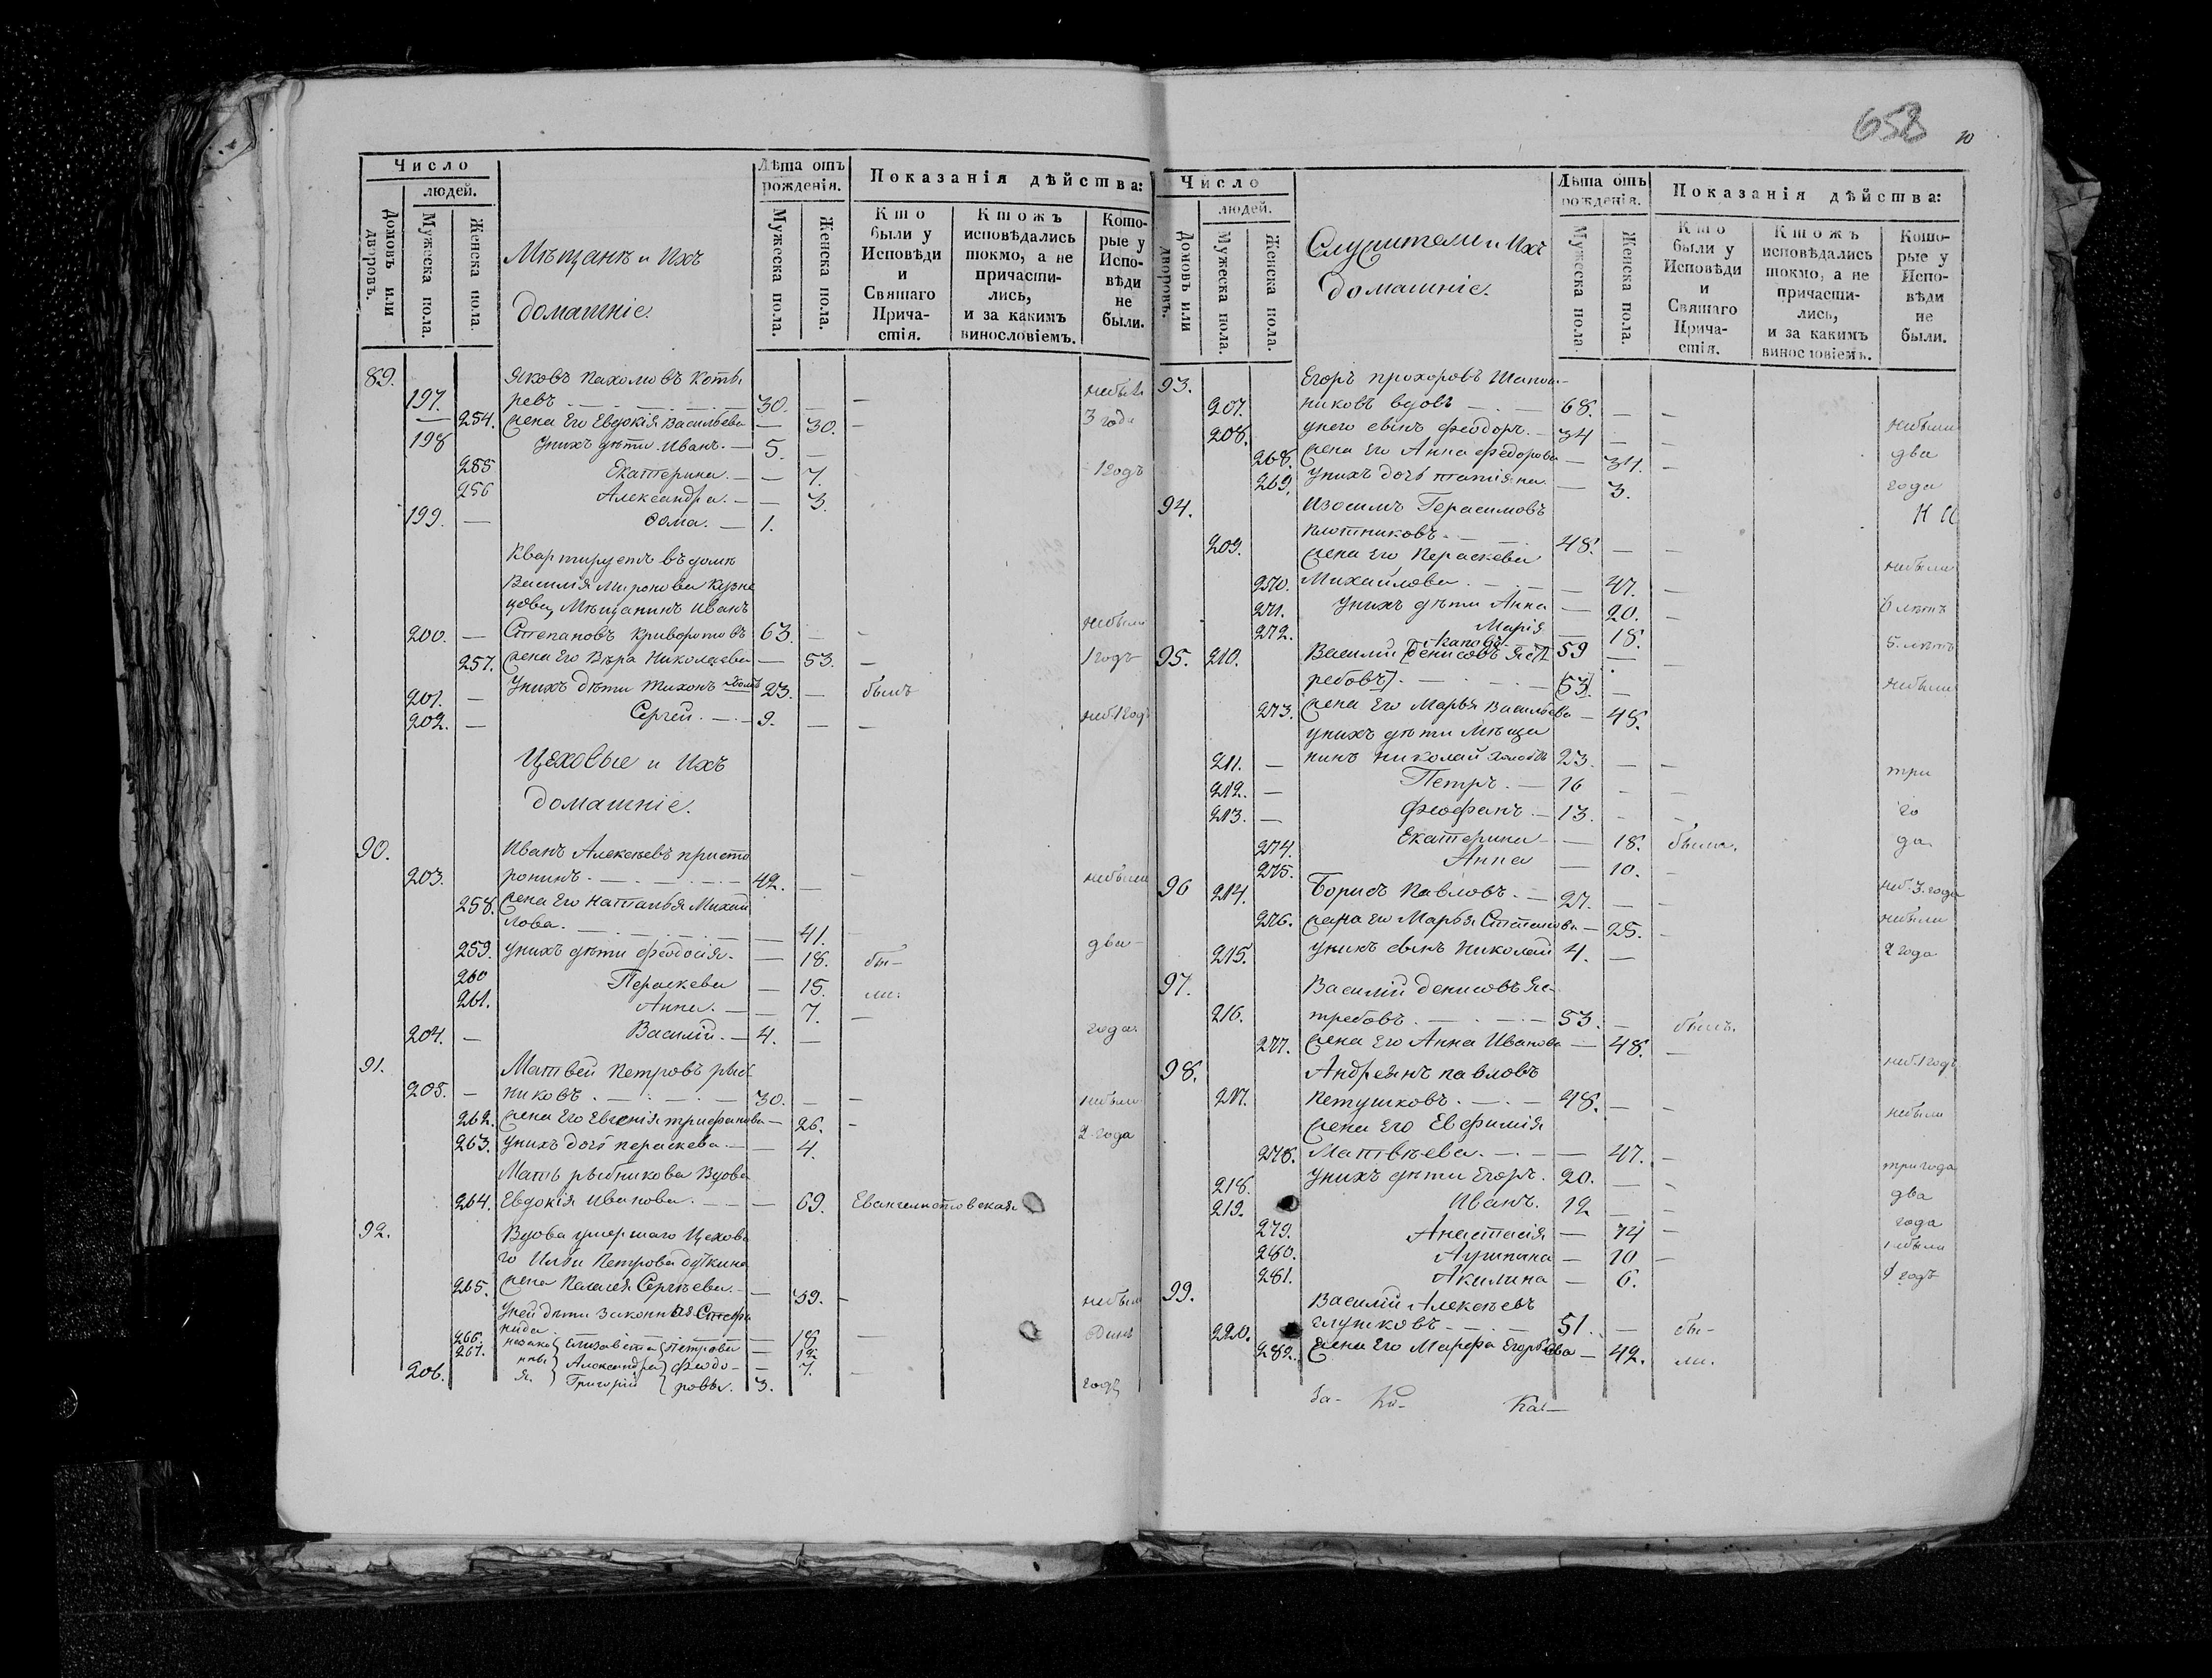 658
10
Число
людей.
Домовъ или дворовъ.
Мужеска пола.
Женска пола.
Мѣщанѣ и Ихъ
домашніе.
Лѣта отъ рожденія.
Мужеска пола.
Женска пола.
Показанія дѣйства:
Кто были у Исповѣди и Святаго Причастія.
Ктожъ исповѣдались токмо, а не причастились, и за какимъ винословіемъ.
Которые у Исповѣди не были.
89. Яковъ Пахомовъ Коты
197. ревъ 30. — — небыл
— 254. жена Его Евдокія Васильева — 30. — 3 года
198 Унихъ дѣти Иванъ. — 5. —
255 Екатерина. — — 7. 1 годъ
256 Александра. — — 3.
199. — Фома. — 1.
Квартируетъ въ домѣ
Василія Миронова Кузне
цова, Мѣщанинъ Иванъ
200. — Степановъ Криворотовъ 63. — — небыли
257. жена Его Вѣра Николаева — 53. — 1 годъ
201. — Унихъ дѣти Тихонъ холостъ 23. — былъ
202. — Сергей. — 9. — — неб. 1 годъ
Цеховые и Ихъ
домашніе.
90. Иванъ Алексѣевъ присто
203. ронинъ. 42. — — небыли
258. жена Его Наталья Михай
лова. — 41. — два
259. Унихъ дѣти Феодосія. — 18. бы-
260 Пераскева — 15. ли.
261. Анна. — — 7. —
204. — Василій. — 4. — года.
91. Матвей Петровъ рыб
205. — никовъ. 30. — — небыли
262. жена Его Евгенія трифанова — 26. —
263. Унихъ дочь пераскева. — — 4. 2 года
Мать рыбникова Вдова
264. Евдокія Иванова. — 69. Евангелистовская
92. Вдова умершаго Цехова
го Ильи Петрова дуткина
265. жена Палагея Сергѣева. — 39. — небыли
Уней дѣти Законныя Стефа
нида
266. незако Елизавета Петровы — 18 — Динъ
267. нны Александра Феодо- — 12
206. я. Григорій ровы. 3. 7. — годъ
Число
людей.
Домовъ или дворовъ.
Мужеска пола.
Женска пола.
Служители и Ихъ
домашніе.
Лѣта отъ рожденія.
Мужеска пола.
Женска пола.
Показанія дѣйства:
Кто были у Исповѣди и Святаго Причастія.
Ктожъ исповѣдались токмо, а не причастились, и за какимъ винословіемъ.
Которые у Исповѣди не были.
93. Егоръ прохоровъ Шапош-
207. никовъ вдовъ 68. — —
208. унего сынъ Феодоръ. — 34 — небыли
268. жена Его Анна Федорова — 34. — два
269. Унихъ дочь татіяна. — 3. года
94. Изосимъ Герасимовъ
209. плотниковъ. 48. — —
жена Его Пераскева небыли
270. Михайлова. — 47. —
271. Унихъ дѣти Анна — 20. — 6 лѣтъ
272. Марія — 18.
95. 210. Василій [денисовъ Яст 59 — 5. лѣтъ
ребовъ]. [53]. — небыли
273. жена Его Марья Васильева — 48.
унихъ дѣти Мѣща
211. — нинъ Николай холостъ 23. — — три
212. — Петръ. — 16 — —
213. — Феофанъ. — 13. — — го
274. Екатерина — — 18. была. да
275. Анна — 10. —
96 214. Борисъ Павловъ. — 27. — — неб. 3. года
276. жена его Марья Степанова — 25. — небыли
215. унихъ сынъ Николай 4. — 2 года
97. Василій денисовъ Яс
216. требовъ. 53. — былъ.
277. жена Его Анна Иванова — 48. — неб. 1 годъ
98. Андреянъ павловъ
217. Петушковъ. 48. — — небыли
жена Его Евфимія
278. Матвѣева. — 47. —
218. Унихъ дѣти Егоръ. 20. — — три года
219. Иванъ. 12 — — два
279. Анастасія — 14 — года
280. Агрипина — 10 — небыли
281. Акилина — 6. 1 годъ
99. Василій Алексѣевъ
220. глушковъ 51. — бы-
282. жена Его Марфа Егорьева — 42. ли.